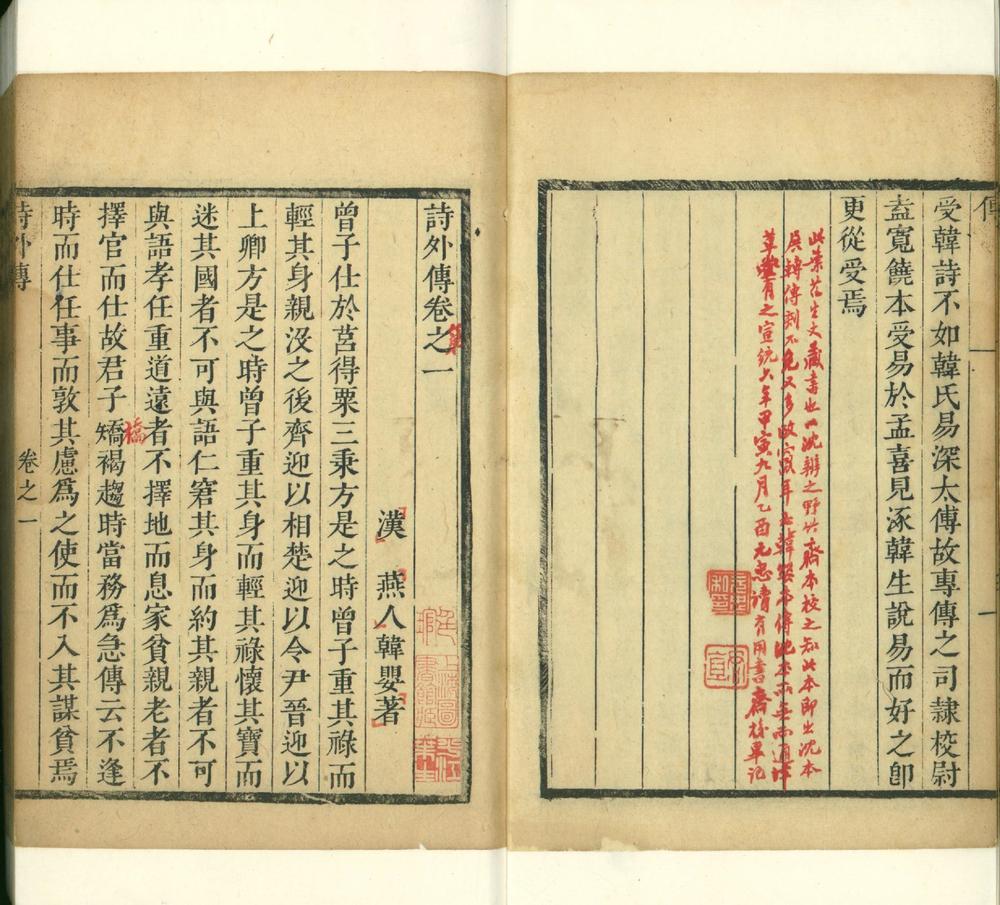 傳
受韓詩不如韓氏易深太傳故專傳之司隷校尉
葢寬饒本受易於孟喜見涿韓生說易而好之卽
更從受焉
一
此葉石生丈藏書也以沈辨之野竹齋本校之知此本即出沈本
展轉傳刻不免又多改竄耳至韓嬰本傳沈本所無而通津
草堂有之宣統六年甲寅九月乙酉元忠讀有用書齋校畢記
詩外傳卷之一
第
漢 燕人韓嬰著
曾子仕於莒得粟三秉方是之時曾子重其祿而
輕其身親沒之後齊迎以相楚迎以令尹晉迎以
上卿方是之時曾子重其身而輕其祿懷其寶而
迷其國者不可與語仁窘其身而約其親者不可
與語孝任重道遠者不擇地而息家貧親老者不
擇官而仕故君子矯褐趨時當務爲急傳云不逢
橋
時而仕任事而敦其慮爲之使而不入其謀貧焉
詩外傳
卷之一
上海圖書館藏